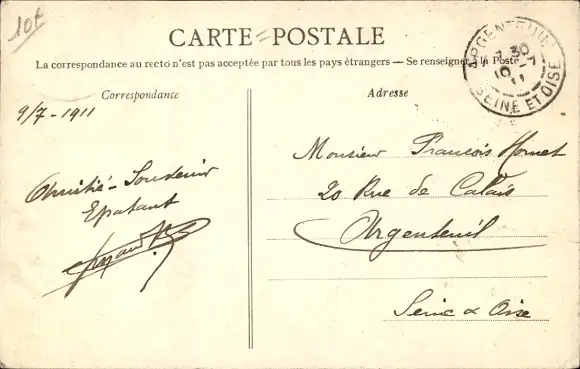 10F
CARTE POSTALE
La correspondance au recto n'est pas acceptée par tous les pays étrangers — Se renseigner à la Poste
ARGENTEUIL
7 30
10 - 7
11
SEINE ET OISE
Correspondance
9/7 - 1911
Amitié - Souvenir
Epatant
Adresse
Monsieur François Hornet
20 Rue de Calais
Argenteuil
Seine & Oise